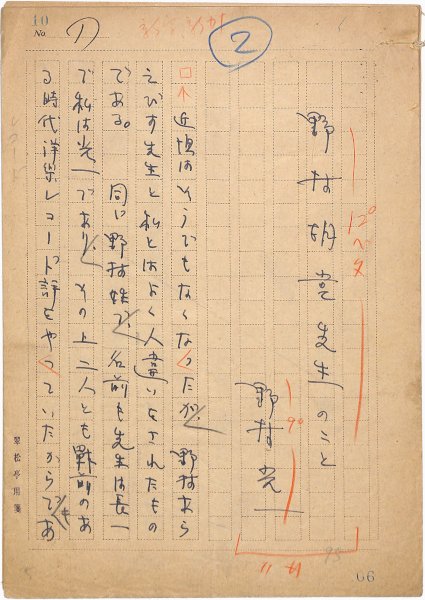 10
No. 1)
2
野村胡堂先生のこと
12ºベタ
野村光一
9º
近頃はそうでもなくなったが、野村あら
えびす先生と私とはよく人違いをされたもの
である。 同じ野村姓で、名前も先生は長一
で私は光一であり、その上二人とも戦前のあ
る時代洋楽レコード評をやっていたからであ
66